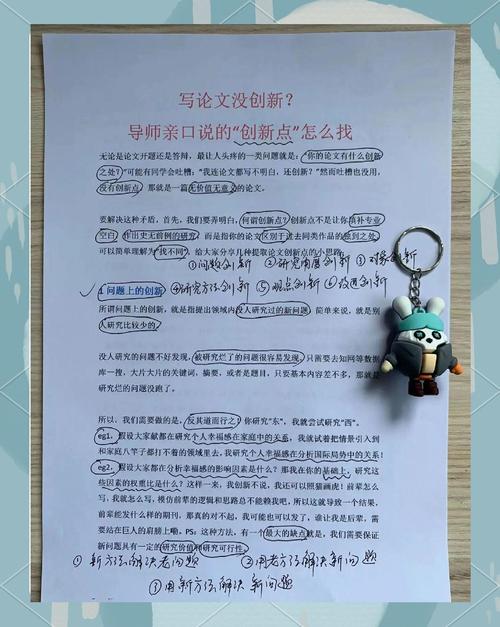 写论文没创新？
导师亲口说的“创新点”怎么找
无论是论文开题还是答辩，最让人头疼的一类问题就是：“你的论文有什么创新
之处？”可能有同学会吐槽：“我连论文都写不明白，还创新？”然而吐槽也没用，
没有创新点，那就是一篇无价值无意义的论文。
要解决这种矛盾，首先，我们要弄明白，何谓创新点？创新点不是让你填补专业
空白，作出史无前例的研究，而是指你的论文区别于过去同类作品的独到之处，
可以简单理解为“找不同”，给大家分享几种提取论文创新点的小思路。
①问题创新 ②研究角度创新 ③对象创新
1 问题上的创新 ④研究方法创新 ⑤观点创新 ⑥改进创新
所谓问题上的创新，就是指提出领域内没人研究过的新问题，简单来说，就是别
人研究比较少的。
没人研究的问题不好发现，被研究烂了的问题很容易发现，只需要去知网等数据
库一搜，大片大片的关键词，摘要，或者是题目，只要基本内容差不多，那就是
研究烂的问题没跑了。
所以，我们需要做的是，反其道而行之！你研究“东”，我就尝试研究“西”。
eg1，假设大家都在研究个人幸福感在家庭中的关系，我就试着把情景引入到
和家庭八竿子都打不着的领域里去，我研究个人幸福感在分析国际局势中的关系！
eg2，假设大家都在分析幸福感的影响因素是什么？那我在你的基础上，研究这
些因素的权重比是什么？这样一来，我创新不说，我还可以照猫画虎！前辈怎么
写，我就怎么写，模仿前辈的逻辑和思路总不能赖我吧，所以这就导致一个结果，
前辈能发什么样的期刊，那真的对不起，我可能也可以发了，谁让我是后辈，需
要站在巨人的肩膀上嘞。PS：这种方法，有一个最大的缺点就是，我们需要保证
新问题具有一定的研究价值和研究可行性。
①新方法解决老问题 ②用老方法解决新问题
③用新方法解决新问题